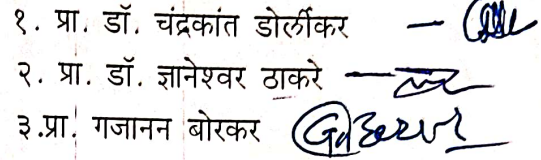 १. प्रा. डॉ. चंद्रकांत डोर्लीकर —
२. प्रा. डॉ. ज्ञानेश्वर ठाकरे —
३.प्रा. गजानन बोरकर